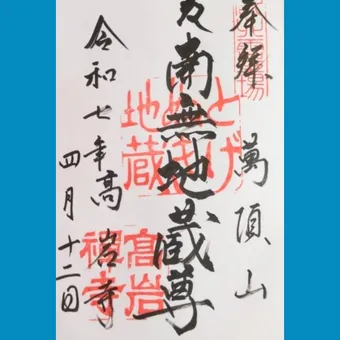 奉拝
萬頂山
南無地蔵尊
とげ
ぬき
地蔵
高岩寺
高岩
禅寺
令和七年
四月十二日